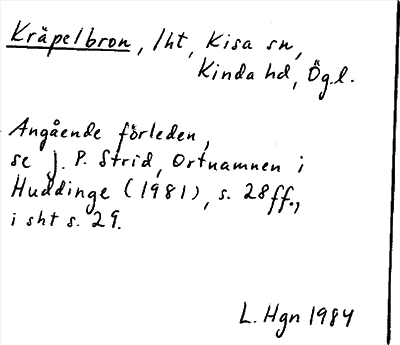 Kräpelbron, lht, Kisa sn,
Kinda hd, Ögl.
Angående förleden,
se J. P. Strid, Ortnamnen i
Huddinge (1981), s. 28ff.,
i sht s. 29.
L. Hgn 1984